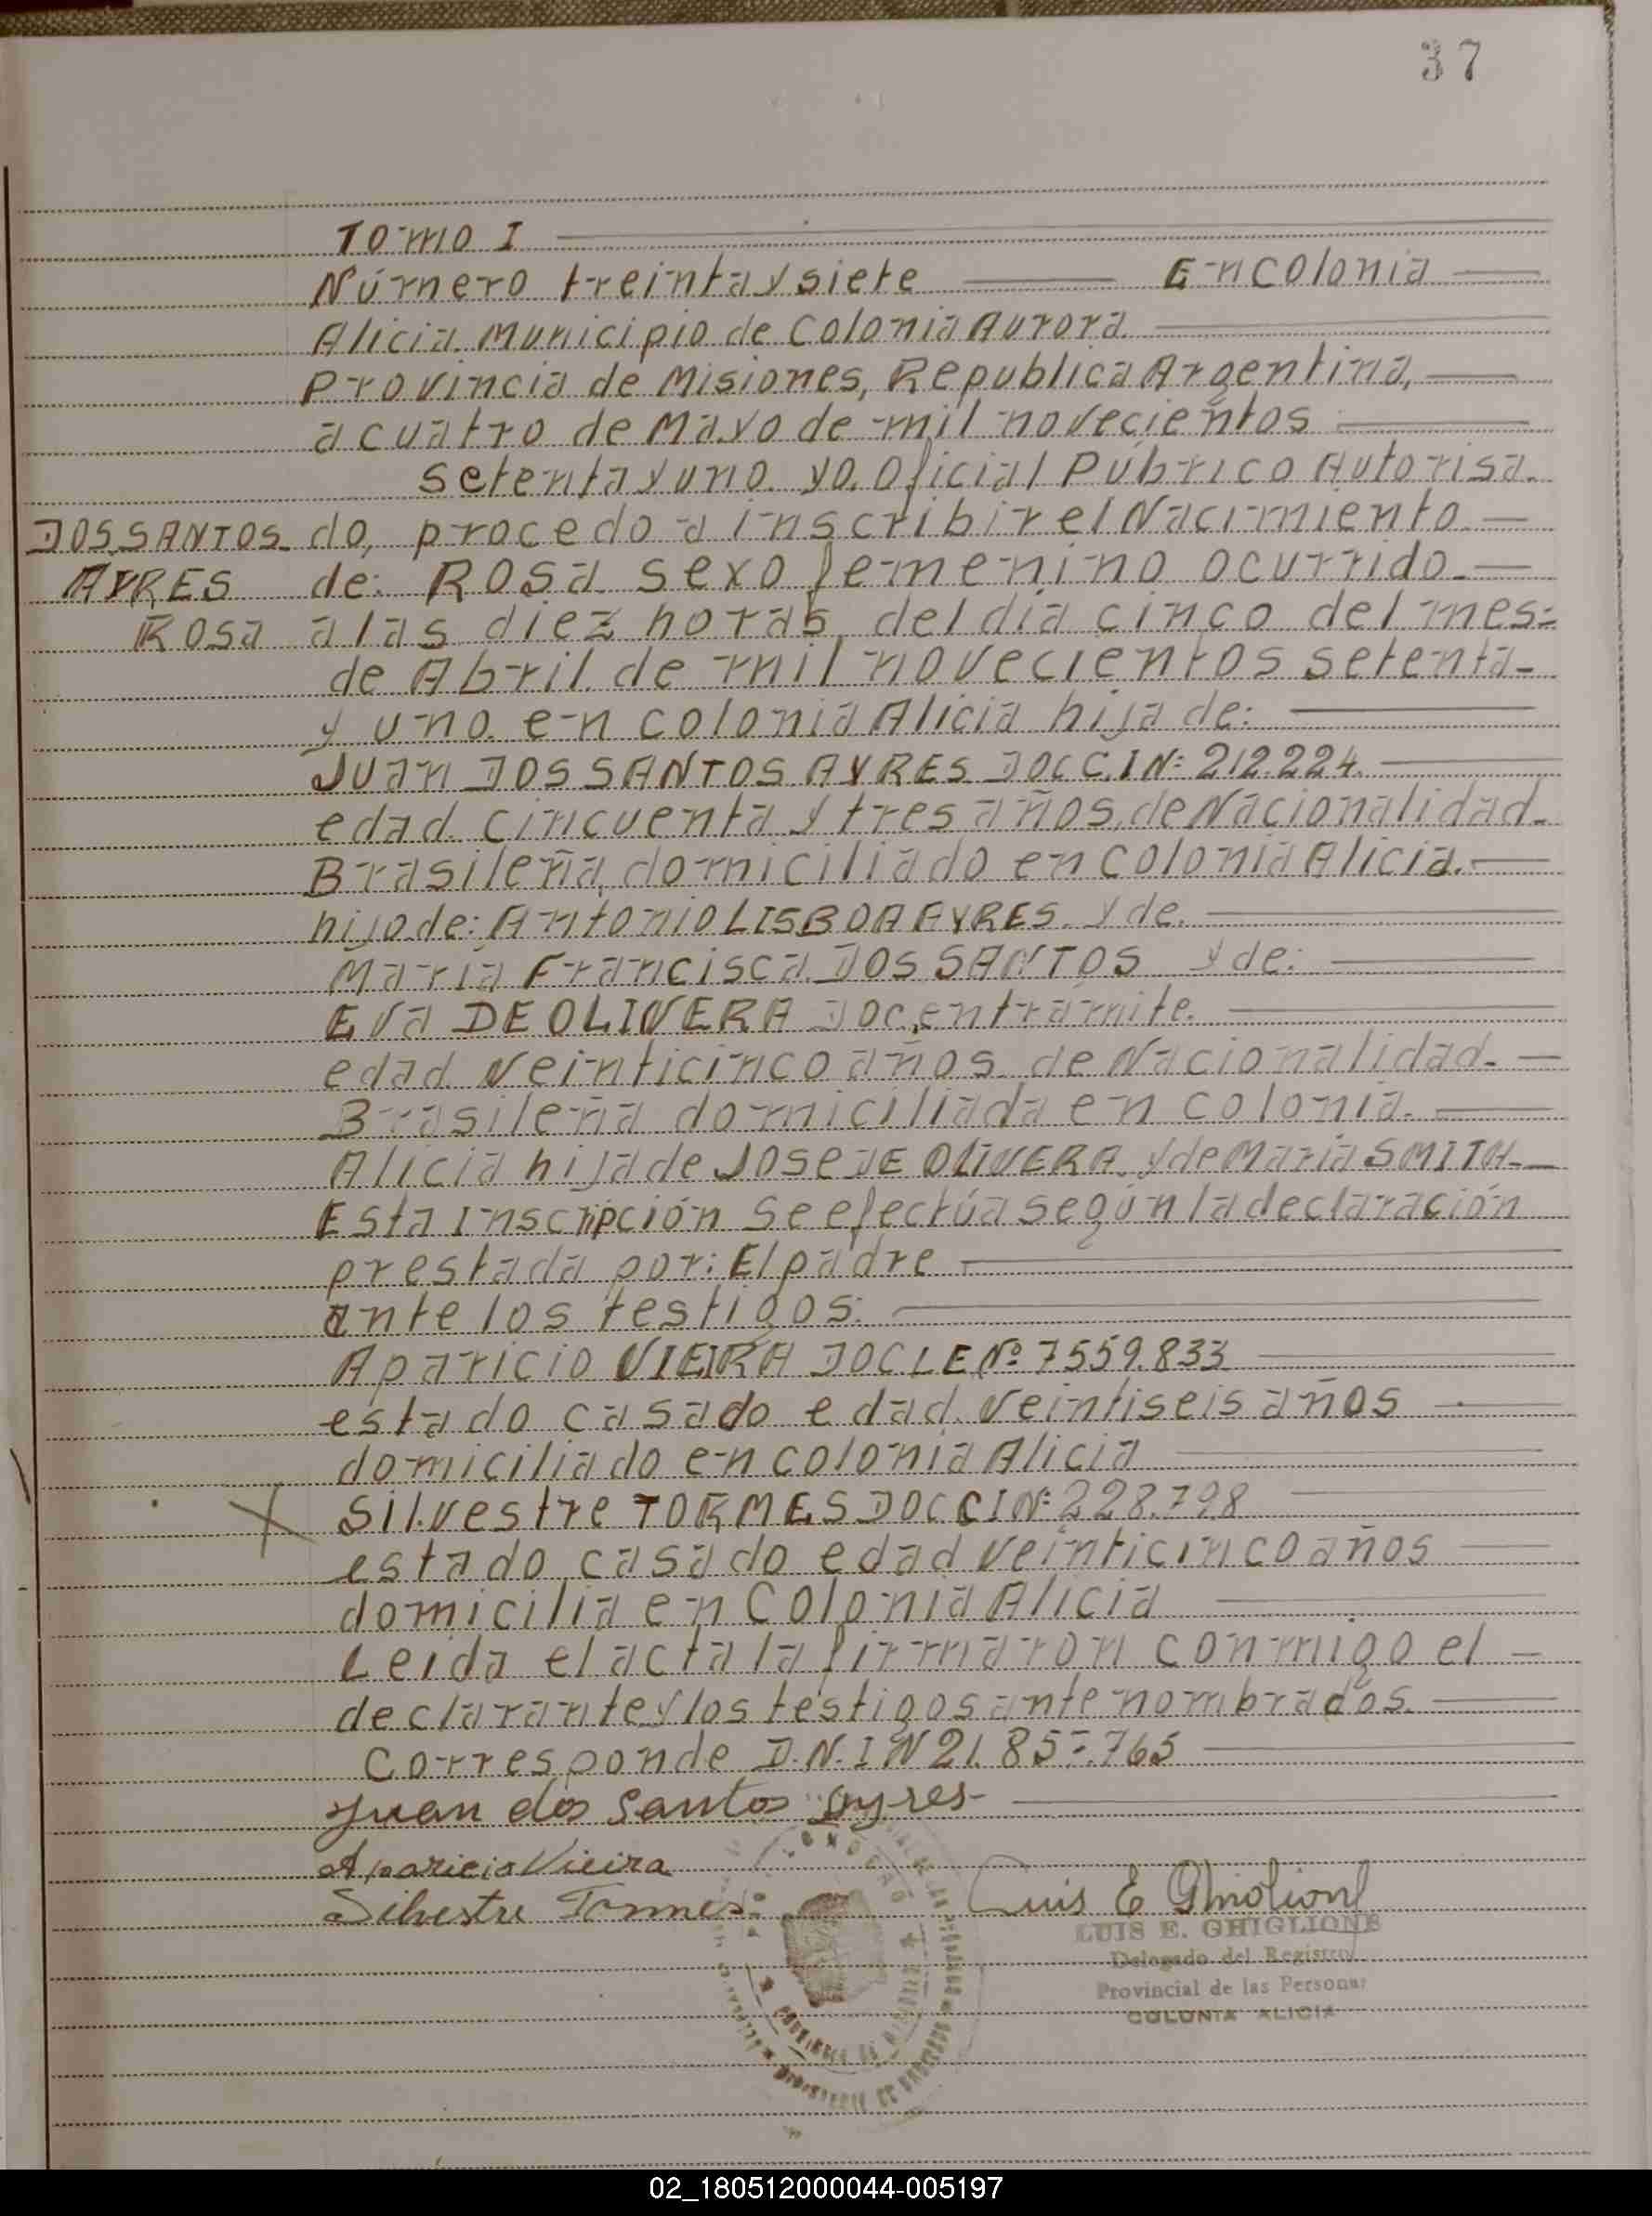 37
Tomo I
Número treinta y siete En Colonia
Alicia. Municipio de Colonia Aurora.
Provincia de Misiones, Republica Argentina,
a cuatro de Mayo de mil novecientos
setenta y uno. yo, Oficial Púbrico Autorisa.
DOS SANTOS do, procedo a inscribir el Nacimiento
AYRES de: Rosa sexo femenino ocurrido
Rosa a las diez horas, del día cinco del mes=
de Abril. de mil novecientos setenta-
y uno. en colonia Alicia hija de:
Juan DOS SANTOS AYRES DOC C.I Nº 212.224.
edad. cincuenta y tres años, de Nacionalidad.
Brasileña, domiciliado en Colonia Alicia.
hijo de: Antonio LISBOA AYRES. y de.
Maria Francisca DOS SANTOS y de:
Eva DE OLIVERA Doc. en tramite.
edad Veinticinco años de Nacionalidad.
Brasileña domiciliada en colonia.
Alicia hija de Jose DE OLIVERA. y de Maria SMITH.
Esta Inscripción se efectúa según la declaración
prestada por: El padre
ante los testigos:
Aparicio VIEIRA DOC. L E Nº 7559.833
estado casado edad. Veintiseis años
domiciliado en colonia Alicia
Silvestre TORMES DOC C I Nº 228.798
estado casado edad Veinticinco años
domicilia en Colonia Alicia
Leida el acta la firmaron conmigo el
declarante y los testigos ante nombrados.
Corresponde D.N.I N 21.857.765
Juan dos Santos Ayres
Aparicio Vieira
Silvestre Tormes
Luis E Ghiglione
LUIS E. GHIGLIONE
Delegado del Registro
Provincial de las Personas
COLONIA ALICIA
02_180512000044-005197